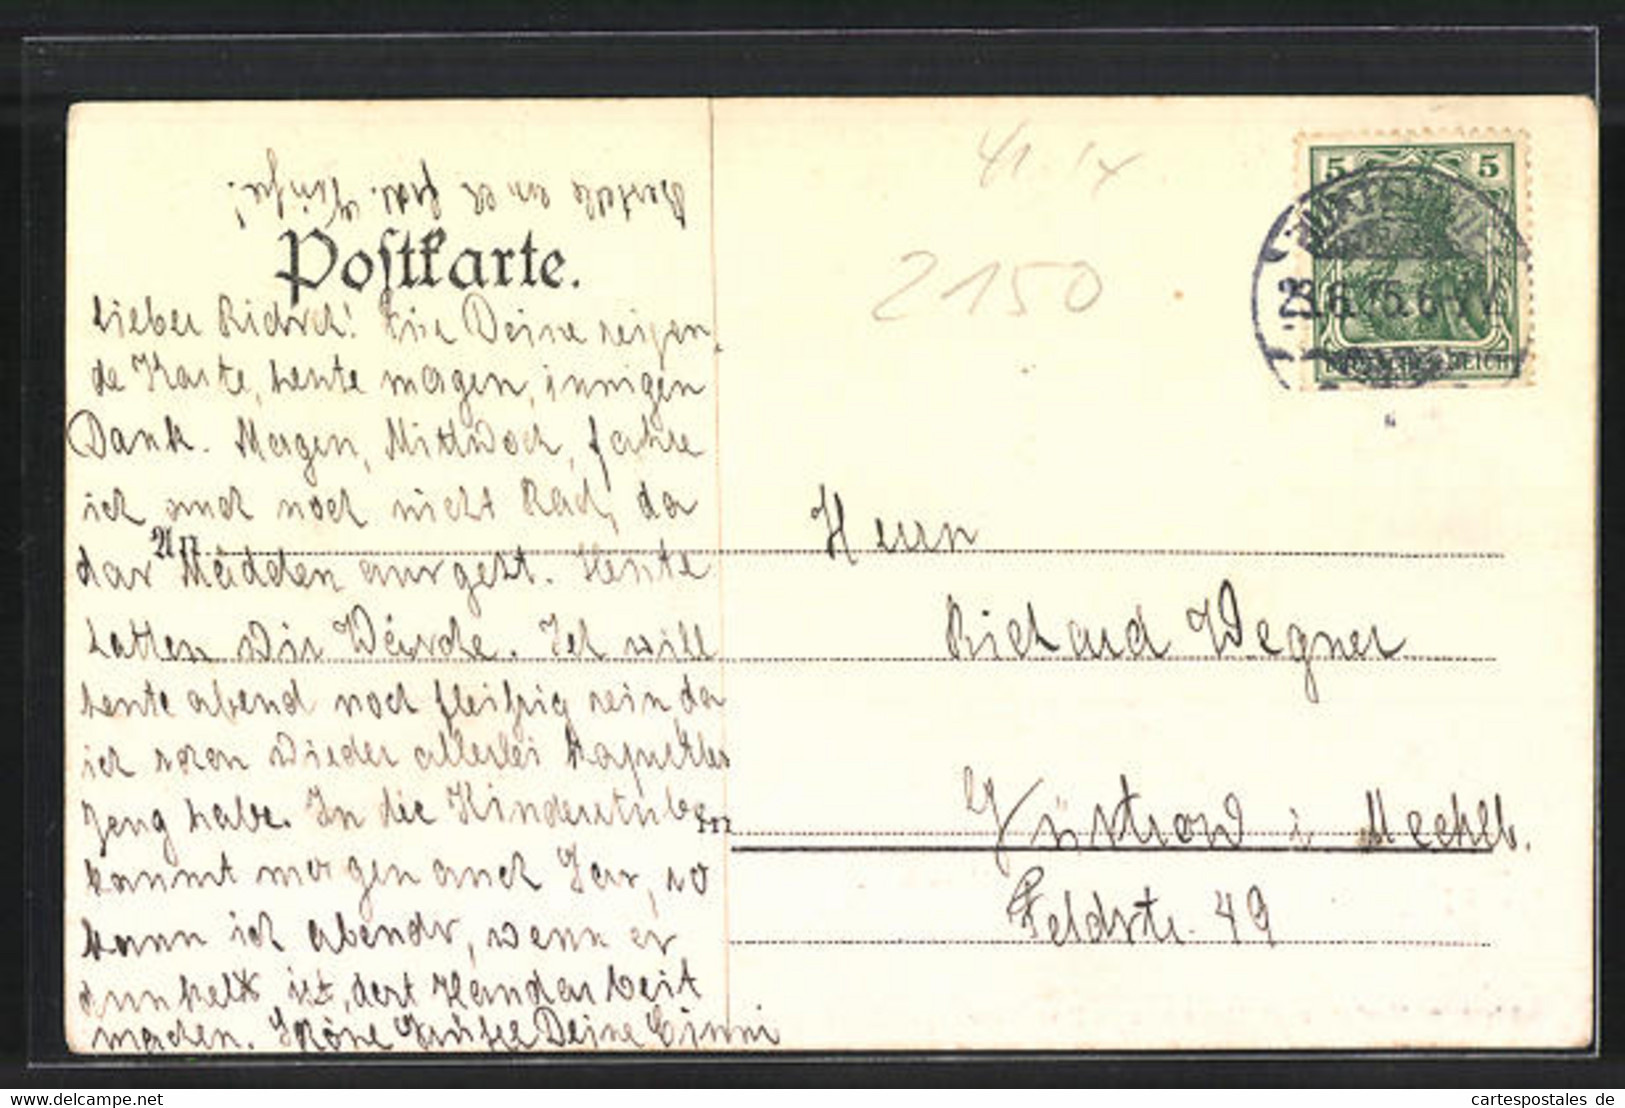 Postkarte.
Lieber Richard! Für Deine reizen-
de Karte, heute morgen, innigen
Dank. Morgen, Mittwoch, fahre
ich auch noch nicht Rad, da
das Mädchen ausgeht. Heute
hatten wir Wäsche. Ich will
heute abend noch fleißig sein, da
ich wieder allerlei kaputtes
Zeug habe. In die Kinderstube
kommt morgen auch Gas, so
kann ich abends, wenn es
dunkelt ist, dort Handarbeit
machen. Schöne Grüße Deine Cinni
41
2150
5 5
REICH
An
Herrn
Richard Wegner
in
Güstrow i Mecklb.
Feldstr. 49
cartespostales de
www.delcampe.net